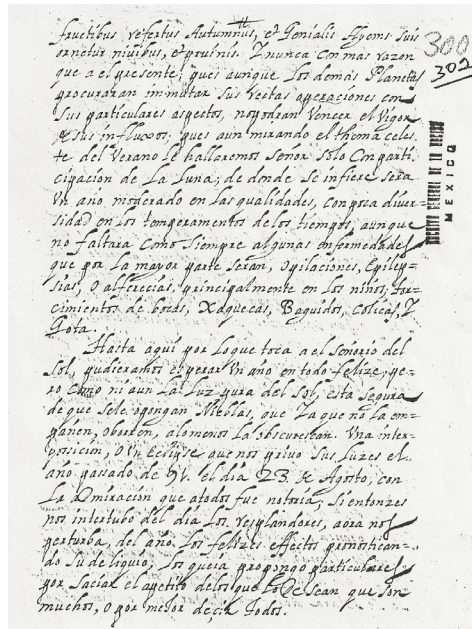 fructibus refertus Autumnus, et Genialis Hyems suis
ornetur nivibus, et pruinis. Y nunca con mas razon
que a el presente; pues aunque los demas Planetas
procuraran immutar sus rectas operaciones con
sus particulares aspectos, no podran vencer el vigor
de sus influxos: pues aun mirando el thema celes-
te del Verano le hallaremos señor solo con parti-
cipacion de la Luna; de donde se infiere sera
un año moderado en las qualidades, con poca diver-
sidad en los temperamentos de los tiempos, aunque
no faltara como siempre algunas enfermedades
que por la mayor parte seran, opilaciones, Epilep-
sias, o alferecias, principalmente en los niños, tor-
cimientos de bocas, Xaquecas, Baguidos, Colicas, Y
Gota.
Hasta aqui por lo que toca a el señorio del
Sol, pudieramos esperar un año en todo felize; pe-
ro como ni aun la luz pura del Sol, esta segura
de que se le opongan Nieblas, que ya que no la em-
pañen, o borren, a lo menos la obscurescan. Una inter-
posicion, o un Eclypse que nos privo sus luzes el
año passado de 91. el dia 23. de Agosto, con
la admiracion que a todos fue notoria; si entonzes
nos inter del dia los resplandores, aora nos
perturba, del año, los felizes effectos pronostican-
do su deliquio, los que propongo particulares
por saciar el apetito de los que lo desean que son
muchos, o por mejor decir todos.
300
302
ARCHIVO GENERAL DE LA NACION
MEXICO